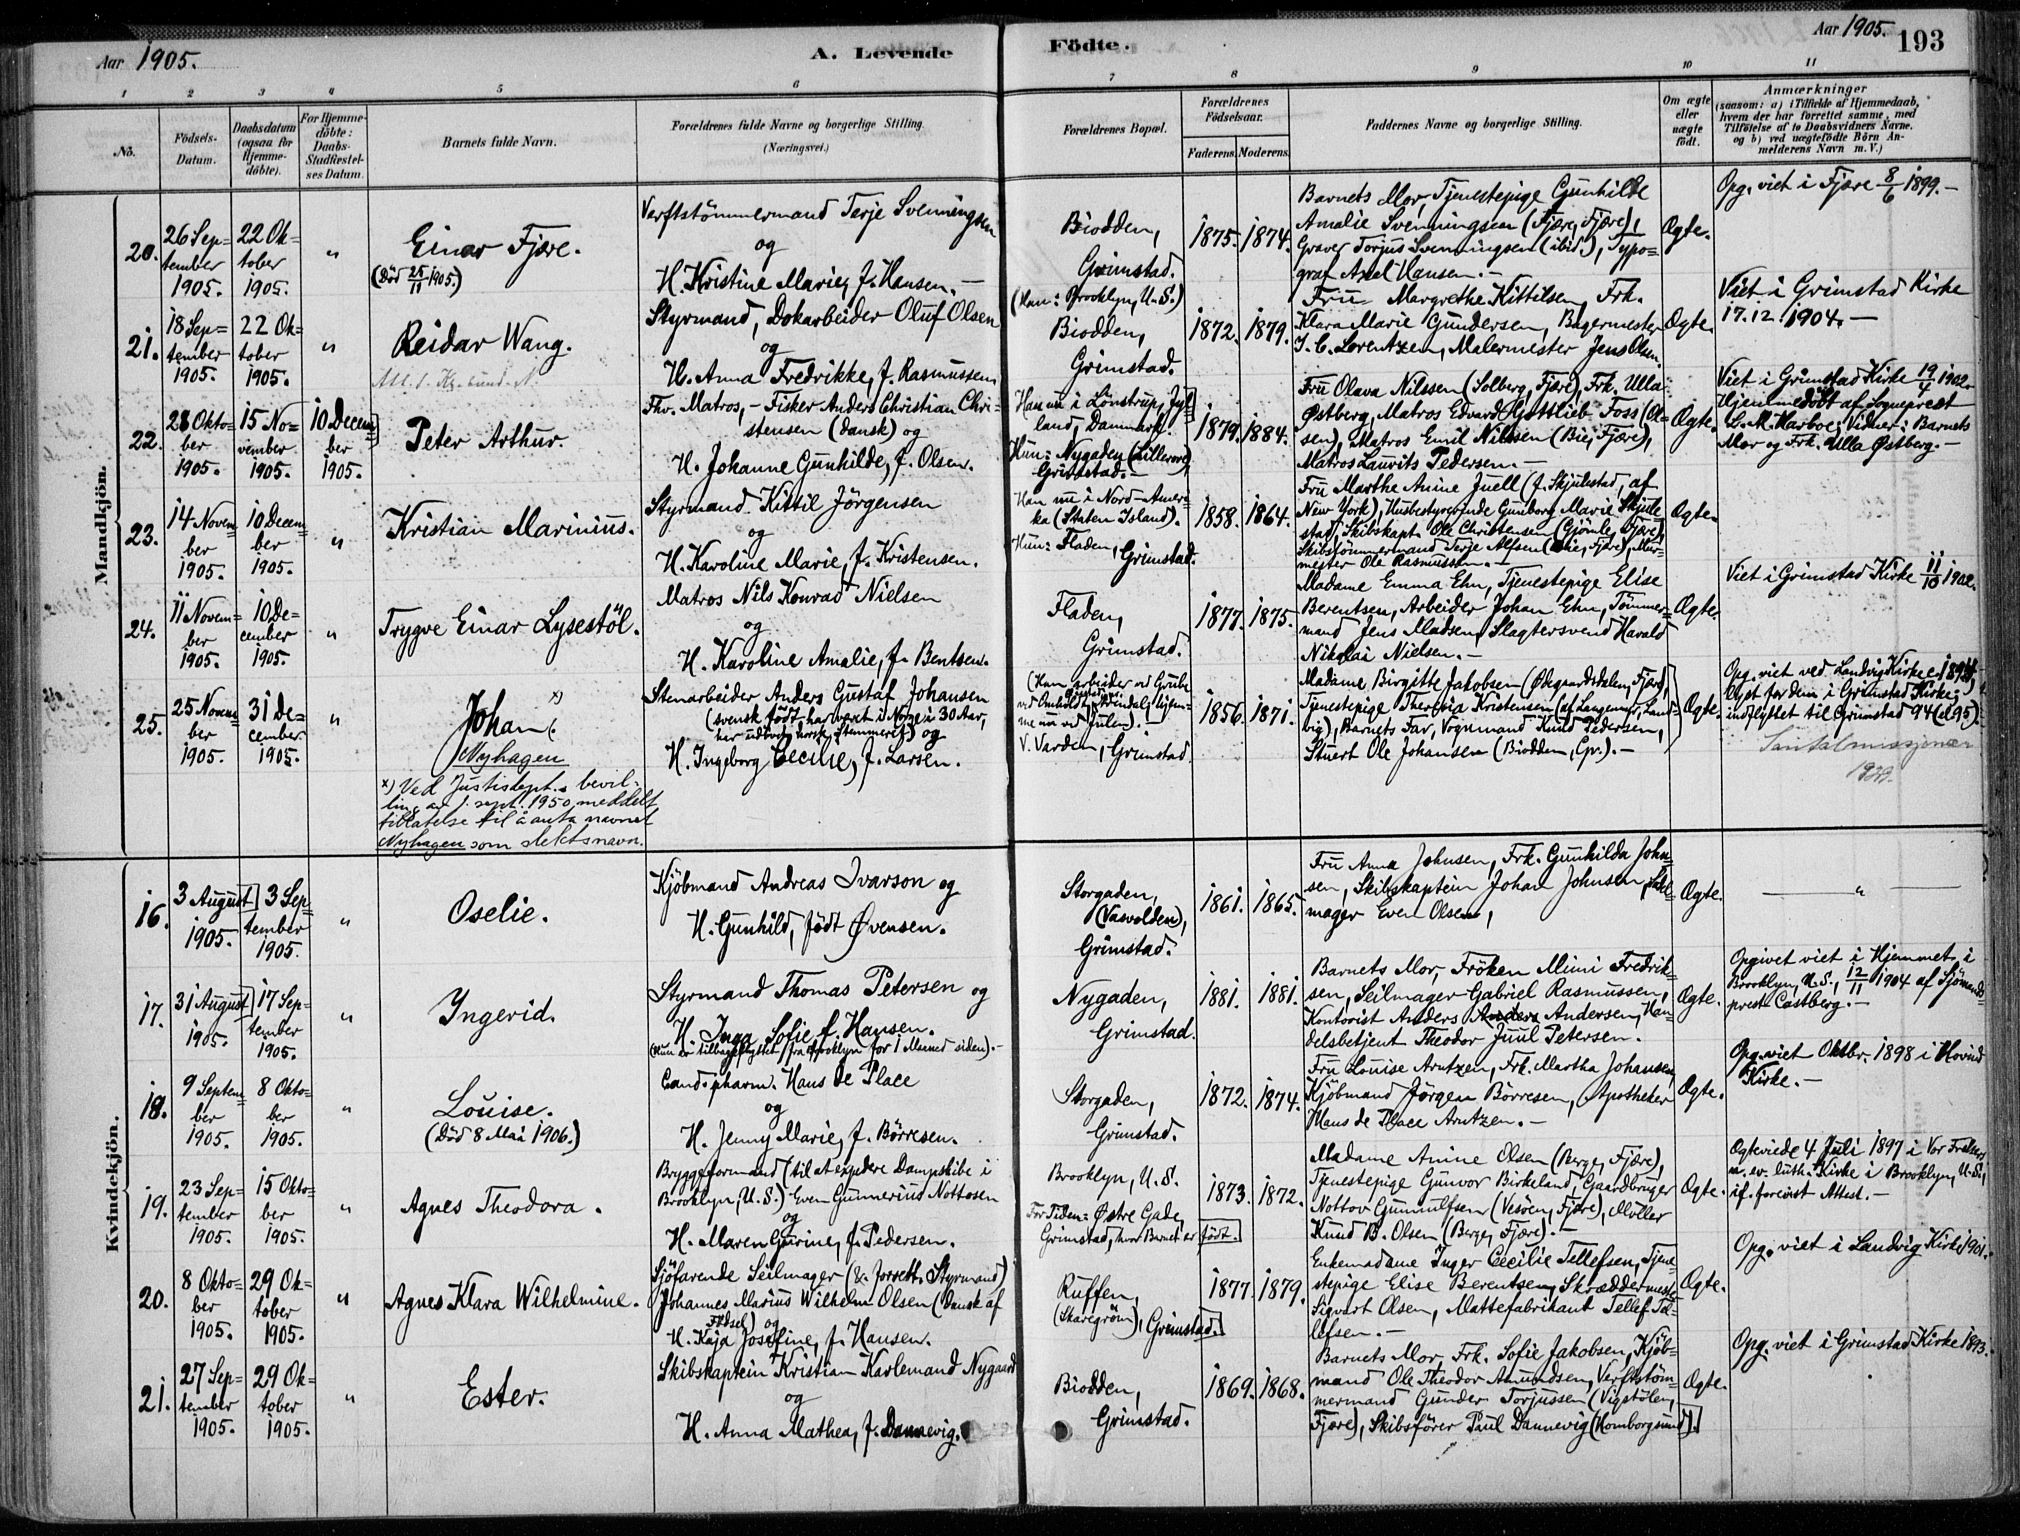 Aar 1905.
A. Levende
Födte.
Aar 1905.
193
1 2 3 4 5 6 7 8 9 10 11
No.
Födsels-Datum.
Daabsdatum (ogsaa for Hjemme-döbte).
For Hjemme-döbte: Daabs-Stadfæstel-ses Datum.
Barnets fulde Navn.
Forældrenes fulde Navne og borgerlige Stilling.
(Næringsvei.)
Forældrenes Bopæl.
Forældrenes Födselsaar.
Faderens. Moderens.
Faddernes Navne og borgerlige Stilling.
Om ægte eller uægte födt.
Anmærkninger
(saasom: a) i Tilfælde af Hjemmedaab, hvem der har forrettet samme, med Tilföielse af to Daabsvidners Navne, og b) ved uægtefödte Börn An-melderens Navn m. V.)
Mandkjön.
20.
26 Sep-
tember
1905.
22 Ok-
tober
1905.
"
Einar Fjære.
(Död 25/11 1905.)
Verftstömmermand Terje Svenningsen
og
H. Kristine Marie, f. Hansen. —
Biodden,
Grimstad.
1875.
1874.
Barnets Mor, Tjenestepige Gunhilde
Amalie Svenningsen (Fjære, Fjære),
Graver Torjus Svenningsen (ibid.), Typo-
graf Axel Hansen. —
Ægte.
Opg. viet i Fjære 8/6 1899. —
21.
18 Sep-
tember
1905.
22 Ok-
tober
1905.
"
Reidar Wang.
Styrmand, Dokarbeider Oluf Olsen
og
H. Anna Fredrikke, f. Rasmussen
(Han: Brooklyn, U.S.)
Biodden,
Grimstad.
1872.
1879.
Fru Margrethe Kittilsen, Frk.
Klara Marie Gundersen, Bagermester
J. C. Lorentzen, Malermester Jens Olsen.
Ægte.
Viet i Grimstad Kirke
17.12.1904. —
22.
28 Okto-
ber
1905.
15 No-
vember
1905.
10 Decem-
ber
1905.
Peter Arthur.
Fhv. Matros, - Fisker Anders Christian Chri-
stensen (dansk) og
H. Johanne Gunhilde, f. Olsen.
Han nu i Lönstrup, Jyl-
land, Danmark.
Hun: Nygaden (Lillerove)
Grimstad. —
1879.
1884.
Fru Olava Nilssen (Solberg, Fjære), Frk. Ulla
Østberg, Matros Edvard Gottlieb Foss (Ol-
sen), Matros Emil Nilssen (Bie, Fjære),
Matros Laurits Pedersen. —
Ægte.
Viet i Grimstad Kirke 19/4 1902.
Hjemmedöbt af Sogneprest
L. M. Harboe; Vidner: Barnets
Mor og Frk. Ulla Østberg. —
23.
14 Novem-
ber
1905.
10 Decem-
ber
1905.
"
Kristian Marinius.
Styrmand Kittil Jörgensen
og
H. Karoline Marie, f. Kristensen.
Han nu i Nord-Ameri-
ka (Staten Island).
Hun: Fladen, Grimstad.
1858.
1864.
Fru Marthe Anine Juell (f. Skjulstad, af
New York), Husbestyrerinde Gunborg Marie Skjul-
stad, Skibskapt. Ole Christensen (Gjömle, Fjære),
Skibstömmermand Terje Alfsen (Bie, Fjære), Mur-
mester Ole Rasmussen. —
Ægte.
24.
11 Novem-
ber
1905.
10 De-
cember
1905.
"
Trygve Einar Lysestöl.
Matros Nils Konrad Nielsen
og
H. Karoline Amalie, f. Bentsen.
Fladen,
Grimstad.
1877.
1875.
Madame Emma Ehn, Tjenestepige Elise
Berentsen, Arbeider Johan Ehn, Tömmer-
mand Jens Madsen, Slagtersvend Harald
Nikolai Nielsen. —
Ægte.
Viet i Grimstad Kirke 11/10 1902.
25.
25 Novem-
ber
1905.
31 De-
cember
1905.
"
Johan x)
Nyhagen
x) Ved Justisdept.s bevil-
ling av 1. sept. 1950 meddelt
tillatelse til å anta navnet
Nyhagen som slektsnavn.
Stenarbeider Anders Gustaf Johansen
(svensk födt, har været i Norge i 30 Aar,
har udövet norsk Stemmeret) og
H. Ingeborg Cecilie, f. Larsen.
(Han arbeider ved Grube
ved Omholdt, Arendal; hjem-
me nu ved Julen).
V. Varden, Grimstad
1856.
1871.
Madame Birgitte Jakobsen (Ødegaardsdalen, Fjære),
Tjenestepige Theresia Kristensen (af Langemyr, Land-
vig), Barnets Far, Vognmand Knud Pedersen,
Stuert Ole Johansen (Biodden, Gr.). —
Ægte.
Opg. viet ved Landvig Kirke c. 1894,
lyst for dem i Grimstad Kirke;
indflyttet til Grimstad 94 (el. 95).
Santalmissjonær
Kvindekjön.
16.
3 August
1905.
3 Sep-
tember
1905.
"
Oselie.
Kjöbmand Andreas Ivarson og
H. Gunhild, födt Øvensen.
Storgaden,
(Vasvolden),
Grimstad.
1861.
1865.
Fru Anna Johnsen, Frk. Gunhilda John-
sen, Skibskaptein Johan Johnsen,
mager Even Olsen,
Ægte.
— " —
17.
31 August
1905.
17 Sep-
tember
1905.
"
Ingerid.
Styrmand Thomas Petersen og
H. Inga Sofie f. Hansen.
(Hun er tilbageflyttet fra Brooklyn for 1 Maaned siden). —
Nygaden,
Grimstad.
1881.
1881.
Barnets Mor, Fröken Mimi Fredrik-
sen, Seilmager Gabriel Rasmussen,
Kontorist Anders Anders Andersen, Han-
delsbetjent Theodor Juul Petersen.
Ægte.
Opgivet viet i Hjemmet i
Brooklyn, U.S., 12/11 1904 af Sjömands-
prest Castberg. —
18.
9 Septem-
ber
1905.
8 Okto-
ber
1905.
"
Louise.
(Död 8 Mai 1906.)
Cand. pharm. Hans de Place
og
H. Jenny Marie, f. Börresen.
Storgaden,
Grimstad.
1872.
1874.
Fru Louise Arntzen, Frk. Martha Johansen,
Kjöbmand Jörgen Börresen, Apotheker
Hans de Place Arntzen. —
Ægte.
Opg. viet Oktbr. 1898 i Hovind
Kirke. —
19.
23 Sep-
tember
1905.
15 Okto-
ber
1905.
"
Agnes Theodora.
Bryggeformand (til at expedere Dampskibe i
Brooklyn, U.S.) Even Gunnerius Nottosen
og
H. Maren Gurine, f. Pedersen.
Brooklyn, U.S.
For Tiden: Østre Gade,
Grimstad, hvor Barnet er födt.
1873.
1872.
Madame Anine Olsen (Berge, Fjære),
Tjenestepige Gunvor Birkeland, Gaardbruger
Nottov Gunnulfsen (Vesöen, Fjære), Möller
Knud B. Olsen (Berge, Fjære). —
Ægte.
Ægteviede 4 Juli 1897 i Vor Frelsers
n. ev. luth. Kirke i Brooklyn, U.S.,
if. forevist Attest. —
20.
8 Okto-
ber
1905.
29 Ok-
tober
1905.
"
Agnes Klara Wilhelmine.
Sjöfarende Seilmager (& Styrmand)
Johannes Marius Wilhelm Olsen (Dansk af
Födsel) og
H. Kaja Josefine, f. Hansen.
Ruffen,
(Skaregröm), Grimstad.
1877.
1879.
Enkemadame Inger Cecilie Tellefsen, Tjene-
stepige Elise Berentsen, Skræddermester
Sigvart Olsen, Mattefabrikant Tellef Tel-
lefsen. —
Ægte.
Opg. viet i Landvig Kirke 1901.
21.
27 Sep-
tember
1905.
29 Ok-
tober
1905.
"
Ester.
Skibskaptein Kristian Karlemand Nygaard
og
H. Anna Mathea, f. Dannevig.
Biodden,
Grimstad.
1869.
1868.
Barnets Mor, Frk. Sofie Jakobsen, Kjöb-
mand Ole Theodor Amundsen, Verftstöm-
mermand Gunder Torjussen (Vigstölen,
Fjære), Skibsförer Paul Dannevig (Homborgsund).
Ægte.
Opg. viet i Grimstad Kirke 1893.